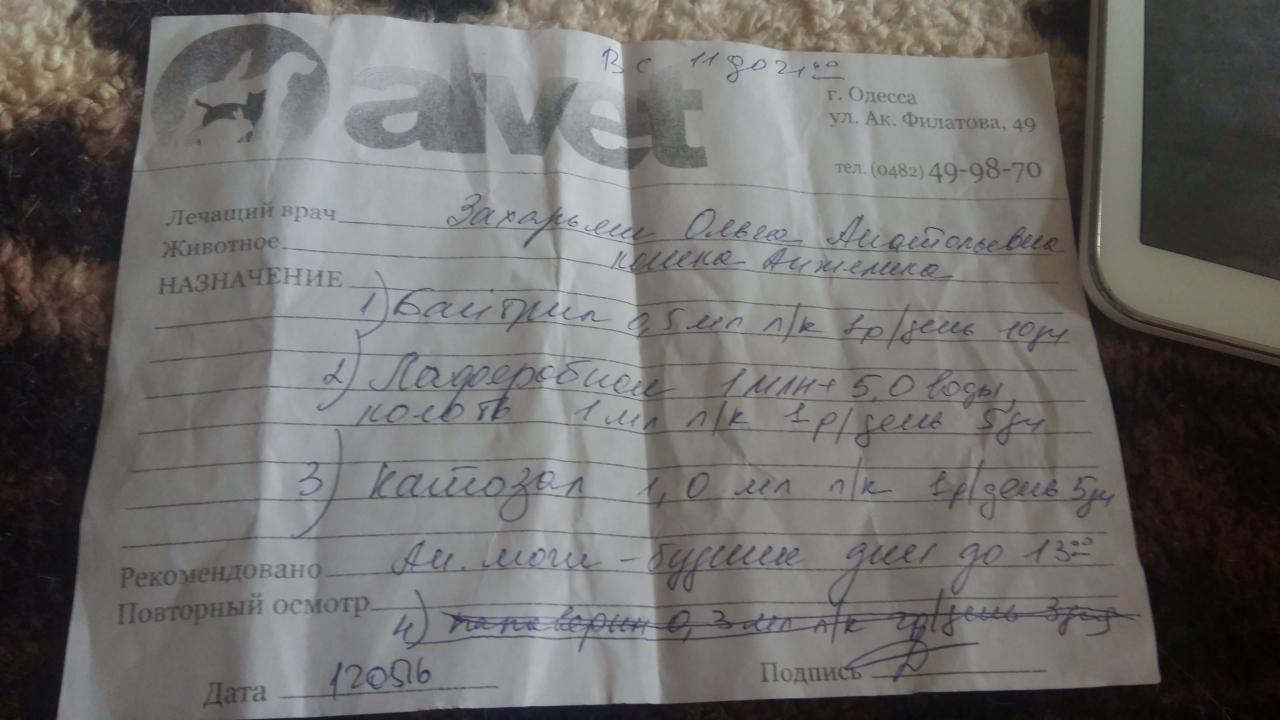 Вс 11 до 21 00
alvet
г. Одесса
ул. Ак. Филатова, 49
тел. (0482) 49-98-70
Лечащий врач Захарьян Ольга Анатольевна
Животное кошка Анжелика
НАЗНАЧЕНИЕ
1) Байтрил 0,5 мл п/к 1р/день 10дн
2) Лаферобион 1 млн + 5,0 воды,
колоть 1 мл п/к 1р/день 5дн
3) Катозал 1,0 мл п/к 1р/день 5дн
Рекомендовано Ан. мочи - будние дни до 13 00
Повторный осмотр
4) папаверин 0,3 мл п/к 2р/день 3дня
Дата 120516
Подпись